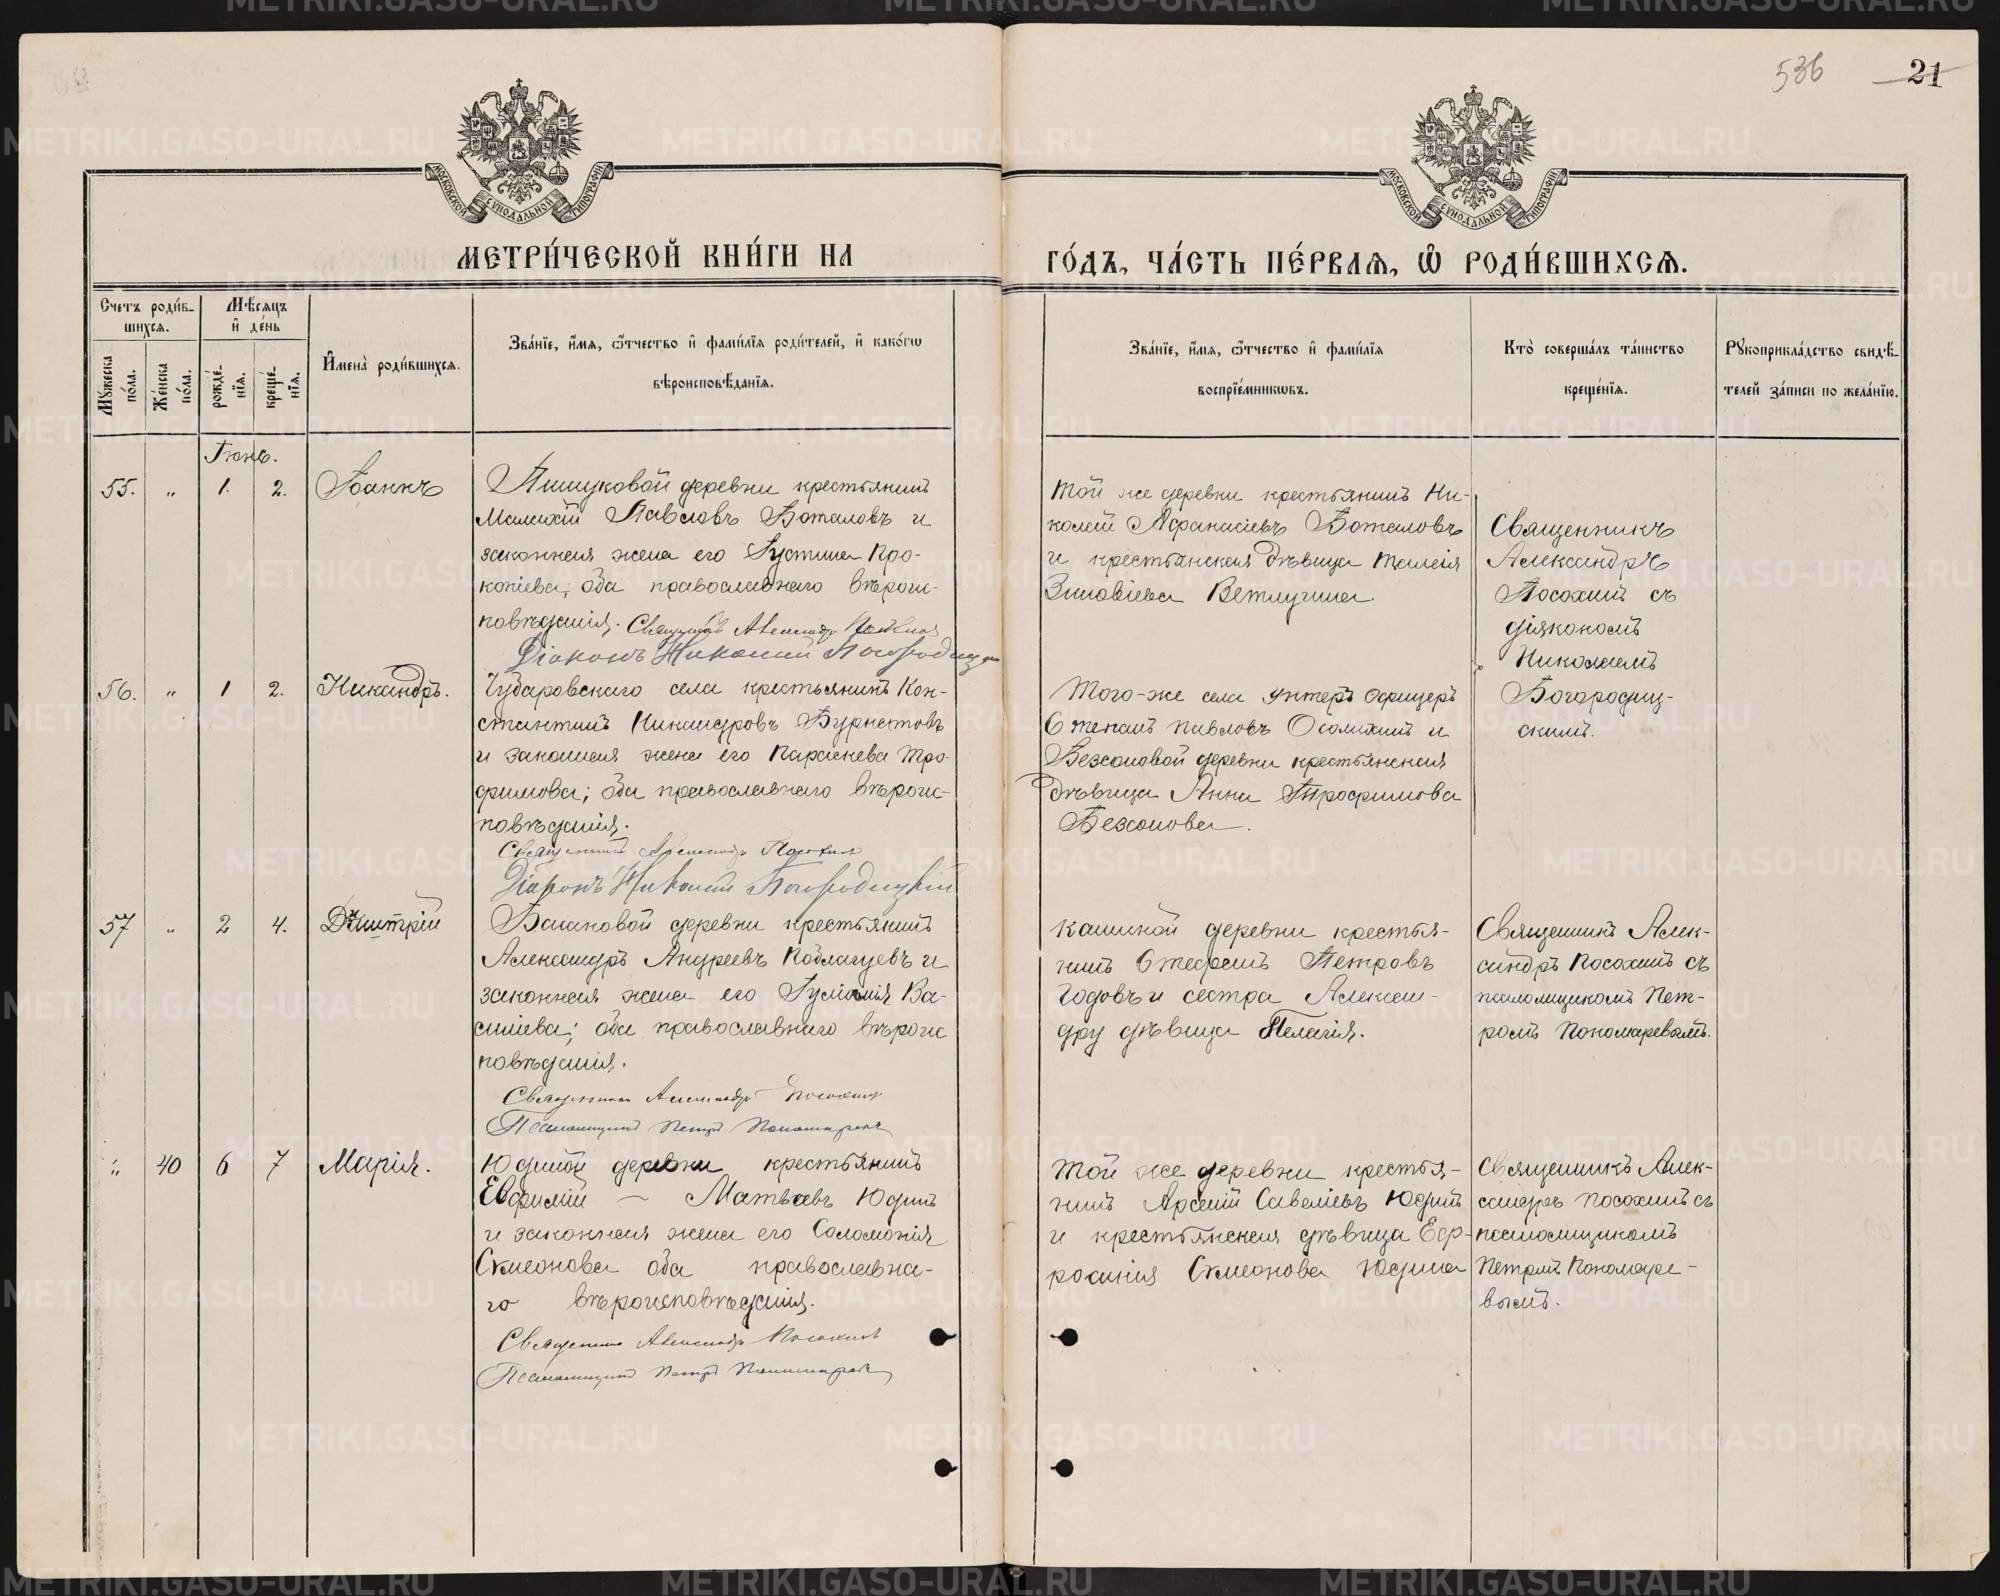 536
21
МОСКОВСКОЙ СУНОДАЛЬНОЙ ТИПОГРАФІИ
МОСКОВСКОЙ СУНОДАЛЬНОЙ ТИПОГРАФІИ
МЕТРИ́ЧЕСКОЙ КНИ́ГИ НА
ГО́ДЪ, ЧА́СТЬ ПЕ́РВАѦ, Ѽ РОДИ́ВШИХСѦ.
Счетъ роди́в-
шихсѧ.
Мѣ́сѧцъ
и҆ де́нь
Мꙋ́жеска
по́ла.
Же́нска
по́ла.
рожде́-
нїѧ.
креще́-
нїѧ.
И҆мена̀ роди́вшихсѧ.
Зва́нїе, и҆́мѧ, ѻ҆́тчество и҆ фами́лїѧ роди́телей, и҆ како́гѡ
вѣроисповѣ́данїѧ.
Зва́нїе, и҆́мѧ, ѻ҆́тчество и҆ фами́лїѧ
воспрїе́мникѡвъ.
Кто̀ соверша́лъ та́инство
креще́нїѧ.
Рꙋкоприкла́дство свидѣ́-
телей за́писи по жела́нїю.
Іюнь.
55. " 1. 2. Іоаннъ
деревни крестьянинъ
Малахій Павловъ Боталовъ и
законная жена его Іустина Про-
копіева; оба православнаго вѣроис-
повѣданія. Священникъ Александръ Посохинъ
Діаконъ Николай Богородицкій
Той же деревни крестьянинъ Ни-
колай Афанасіевъ Боталовъ
и крестьянская дѣвица
Зиновіева Ветлугина.
Священникъ
Александръ
Посохинъ съ
діякономъ
Николаемъ
Богородиц-
кимъ.
56. " 1 2. Никандръ.
Чубаровскаго села крестьянинъ Кон-
стантинъ Никандровъ Бурнатовъ
и законная жена его Параскева Тро-
фимова; оба православнаго вѣроис-
повѣданія.
Священникъ Александръ Посохинъ
Діаконъ Николай Богородицкій
Того-же села унтеръ офицеръ
Стефанъ Павловъ и
Безсоновой деревни крестьянская
дѣвица Анна Трофимова
Безсонова.
57 " 2 4. Дмитрій
деревни крестьянинъ
Александръ Андреевъ и
законная жена его Ва-
силіева; оба православнаго вѣроис
повѣданія.
Священникъ Александръ Посохинъ
Псаломщикъ Петръ Пономаревъ
деревни крестья-
нинъ Стефанъ Петровъ
Годовъ и сестра Алексан-
дру дѣвица Пелагія.
Священникъ Алек-
сандръ Посохинъ съ
псаломщикомъ Пет-
ромъ Пономаревымъ.
" 40 6 7 Марія.
Юдиной деревни крестьянинъ
Евфимій – Матвѣевъ Юдинъ
и законная жена его Соломонія
Симеонова оба православна-
го вѣроисповѣданія.
Священникъ Александръ Посохинъ
Псаломщикъ Петръ Пономаревъ
Той же деревни крестья-
нинъ Арсеній Савеліевъ Юдинъ
и крестьянская дѣвица Евф-
росинія Симеонова Юдина
Священникъ Алек-
сандръ Посохинъ съ
псаломщикомъ
Петромъ Пономаре-
вымъ.
METRIKI.GASO-URAL.RU